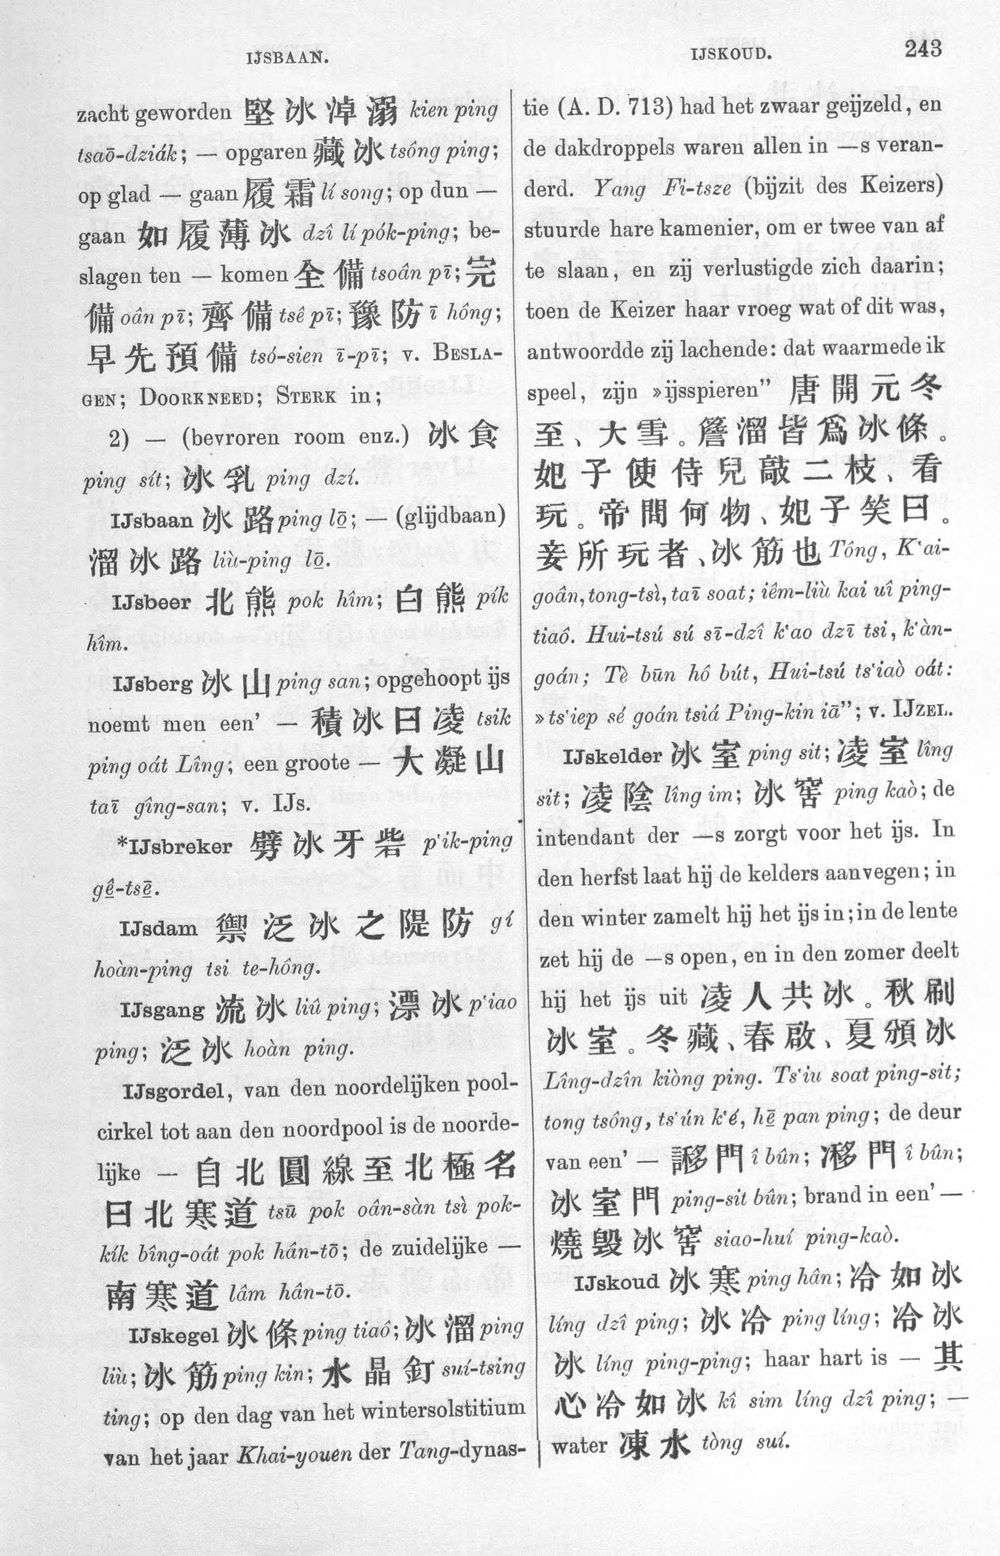 IJSBAAN.
IJSKOUD.
243
zacht geworden 堅冰淖溺 kien ping
tsaō-dziák; — opgaren 藏冰 tsông ping;
op glad — gaan 履霜 lí song; op dun —
gaan 如履薄冰 dzî lí pók-ping; be-
slagen ten — komen 全備 tsoân pī; 完
備 oân pī; 齊備 tsê pī; 豫防 ī hông;
早先預備 tsó-sien ī-pī; v. BESLA-
GEN; DOORKNEED; STERK in;
2) — (bevroren room enz.) 冰食
ping sít; 冰乳 ping dzí.
IJsbaan 冰路 ping lō; — (glijdbaan)
溜冰路 liù-ping lō.
IJsbeer 北熊 pok hîm; 白熊 pík
hîm.
IJsberg 冰山 ping san; opgehoopt ijs
noemt men een' — 積冰曰凌 tsik
ping oát Lîng; een groote — 大凝山
taī gîng-san; v. IJs.
*IJsbreker 劈冰牙砦 p'ik-ping
gê-tsē.
IJsdam 禦泛冰之隄防 gí
hoàn-ping tsi te-hông.
IJsgang 流冰 liû ping; 漂冰 p'iao
ping; 泛冰 hoàn ping.
IJsgordel, van den noordelijken pool-
cirkel tot aan den noordpool is de noorde-
lijke — 自北圓線至北極名
曰北寒道 tsū pok oân-sàn tsì pok-
kík bîng-oát pok hân-tō; de zuidelijke —
南寒道 lâm hân-tō.
IJskegel 冰條 ping tiaô; 冰溜 ping
liù; 冰筋 ping kin; 水晶釘 suí-tsing
ting; op den dag van het wintersolstitium
van het jaar Khai-youen der Tang-dynas-
tie (A. D. 713) had het zwaar geijzeld, en
de dakdroppels waren allen in —s veran-
derd. Yang Fi-tsze (bijzit des Keizers)
stuurde hare kamenier, om er twee van af
te slaan, en zij verlustigde zich daarin;
toen de Keizer haar vroeg wat of dit was,
antwoordde zij lachende: dat waarmede ik
speel, zijn »ijsspieren” 唐開元冬
至、大雪。簷溜皆爲冰條。
妃子使侍兒敲二枝、看
玩。帝問何物、妃子笑曰。
妾所玩者、冰筋也 Tông, K'ai-
goân, tong-tsì, taī soat; iêm-liù kai uî ping-
tiaô. Hui-tsú sú sī-dzî k'ao dzī tsi, k'àn-
goán; Tè būn hô bút, Hui-tsú ts'iaò oát:
»ts'iep sé goán tsiá Ping-kin iā”; v. IJZEL.
IJskelder 冰室 ping sit; 凌室 lîng
sit; 凌陰 lîng im; 冰窖 ping kaò; de
intendant der —s zorgt voor het ijs. In
den herfst laat hij de kelders aanvegen; in
den winter zamelt hij het ijs in; in de lente
zet hij de —s open, en in den zomer deelt
hij het ijs uit 凌人共冰。秋刷
冰室。冬藏、春啟、夏頒冰
Lîng-dzîn kiòng ping. Ts'iu soat ping-sit;
tong tsông, ts'ún k'é, hē pan ping; de deur
van een' — 謻門 î bûn; 㴰門 î bûn;
冰室門 ping-sit bûn; brand in een' —
燒毀冰窖 siao-huí ping-kaò.
IJskoud 冰寒 ping hân; 冷如冰
líng dzî ping; 冰冷 ping líng; 冷冰
冰 líng ping-ping; haar hart is — 其
心冷如冰 kî sim líng dzî ping; —
water 凍水 tòng suí.